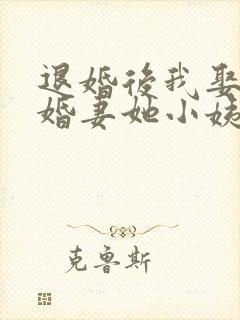 退婚後我娶
婚妻她小姨
克魯斯